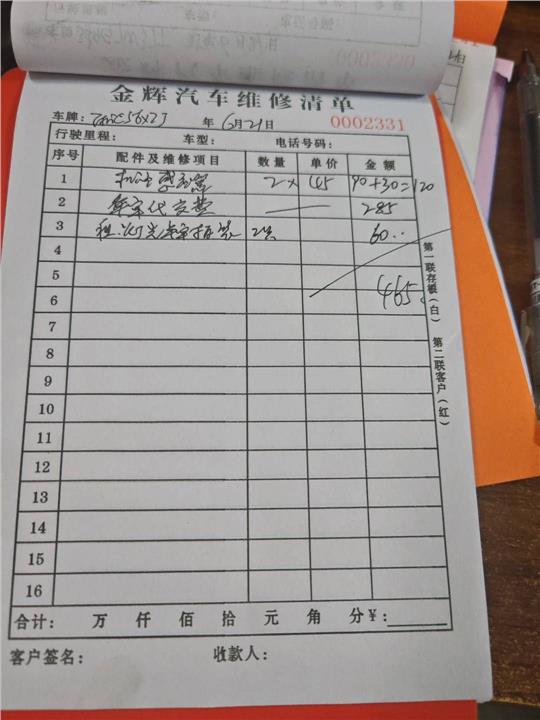 金辉汽车维修清单
车牌: 年 6月21日 0002331
行驶里程: 车型: 电话号码:
序号 配件及维修项目 数量 单价 金额
1 2× 45 90+30=120
2 年审代交费 — 285
3 60..
4
5
6 465.
7
8
9
10
11
12
13
14
15
16
第一联存根(白) 第二联客户(红)
合计: 万 仟 佰 拾 元 角 分¥:
客户签名: 收款人: